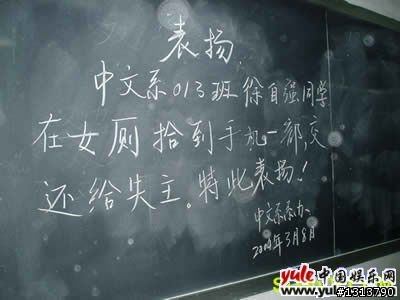 表扬
中文系013班徐自强同学
在女厕拾到手机一部,交
还给失主。特此表扬!
中文系系办
年3月8日
yule中国娱乐网
www.yule
#1313790